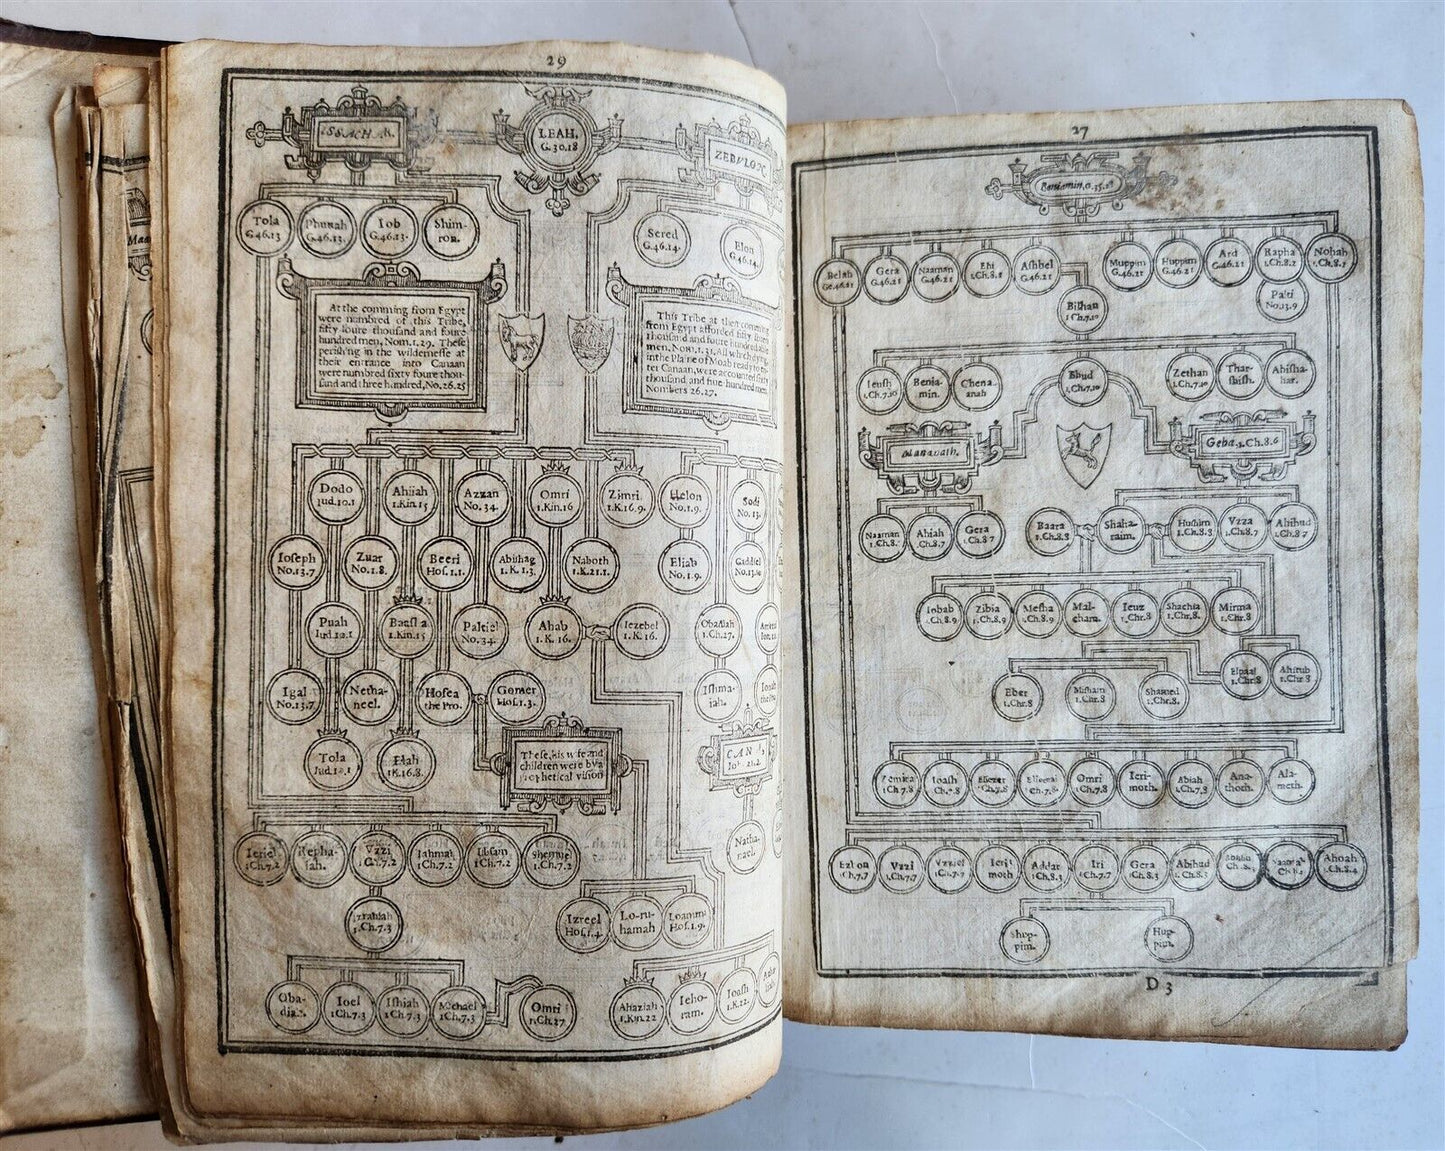 29
ISSACHAR.
LEAH,
G.30.18
ZEBVLON
Tola
G.46.13
Phuuah
G.46.13.
Iob
G.46.13.
Shim-
ron.
Sered
G.46.14.
Elon
G.46.14.
At the comming from Egypt
were numbred of this Tribe,
fifty foure thousand and foure
hundred men, Nom.1.29. These
perishing in the wildernesse at
their entrance into Canaan
were numbred sixty foure thou-
sand and three hundred, No.26.25
This Tribe at their comming
from Egypt afforded fifty seven
thousand and foure hundred able
men, Nom.1.31. All which dying
in the Plaine of Moab ready to en-
ter Canaan, were accounted sixty
thousand and five hundred men,
Numbers 26.27.
Dodo
Iud.10.1
Ahijah
1.Kin.15
Azzan
No. 34.
Omri
1.Kin.16
Zimri.
1.K.16.9.
Helon
No.1.9.
Sodi
No. 13.
Ioseph
No.13.7
Zuar
No.1.8.
Beeri
Hos.1.1.
Abishag
1.K.1.3.
Naboth
1.K.21.1.
Eliab
No.1.9.
Gaddiel
Puah
Iud.10.1
Baasha
1.Kin.15
Paltiel
No.34.
Ahab
1.K.16.
Iezebel
1.K.16.
Obadiah
1.Ch.27.
Igal
No.13.7
Netha-
neel.
Hosea
the Pro.
Gomer
Hos.1.3.
Ishma-
iah.
Tola
Iud.10.1
Elah
1K.16.8.
These, his wife and
children were by a
prophetical vision
CANA,
Ioh. 21.2
Ieriel
1Ch.7.2
Repha-
iah.
Vzzi
1.Ch.7.2
Iahmai
1Ch.7.2
Iibsam
1Ch.7.2
Shemuel
1.Ch.7.2
Natha-
naell
Izrahiah
1.Ch.7.3
Izreel
Hos.1.4.
Lo-ru-
hamah
Loammi
Hos.1.9.
Oba-
dia.
Ioel
1Ch.7.3
Ishiah
1Ch.7.3
Michael
1Ch.7.3
Omri
1.Ch.27
Ahaziah
1.Kin.22
Ieho-
ram.
Ioash
1.K.22.
27
Beniamin, G.35.18
Belah
Ge.46.21
Gera
G.46.21
Naaman
G.46.21
Ehi
1.Ch.8.1
Ashbel
G.46.21
Muppim
G.46.21
Huppim
G.46.21
Ard
G.46.21
Rapha
1.Ch.8.2
Nohah
1.Ch.8.1
Bilhan
1Ch.7.10
Palti
No.13.9
Ieush
1.Ch.7.10
Benia-
min.
Chena-
anah
Ehud
1.Ch.7.10
Zethan
1.Ch.7.10
Thar-
shish.
Ahisha-
har.
Manahath.
Geba.1.Ch.8.6
Naaman
1.Ch.8.
Ahiah
1.Ch.8.7
Gera
1.Ch.8 7
Baara
1.Ch.8.8
Shaha-
raim.
Hushim
1.Ch.8.8
Vzza
1.Ch.8.7
Ahihud
1.Ch.8.7
Iobab
1.Ch.8.9
Zibia
1.Ch.8.9
Mesha
1.Ch.8.9
Mal-
cham.
Ieuz
1.Chr.8
Shachia
1.Chr.8.
Mirma
1.Chr.8
Eber
1.Chr.8
Misham
1.Chr.8
Shamed
1.Chr.8.
Elpaal
1.Chr.8
Ahitub
1.Chr.8
Zemira
1Ch.7.8
Ioash
1.Ch.7.8
Eliezer
1.Ch.7.8
Elioenai
1.Ch.7.8.
Omri
1.Ch.7.8
Ieri-
moth.
Abiah
1.Ch.7.8
Ana-
thoth.
Ala-
meth.
Ezbon
1Ch.7.7
Vzzi
1.Ch.7.7
Vzziel
1.Ch.7.7
Ieri-
moth
Addar
1.Ch.8.3
Iri
1.Ch.7.7
Gera
1.Ch.8.3
Abihud
1.Ch.8.3
Naaman
Ahoah
1.Ch.8.4
Shup-
pim.
Hup-
pim.
D 3